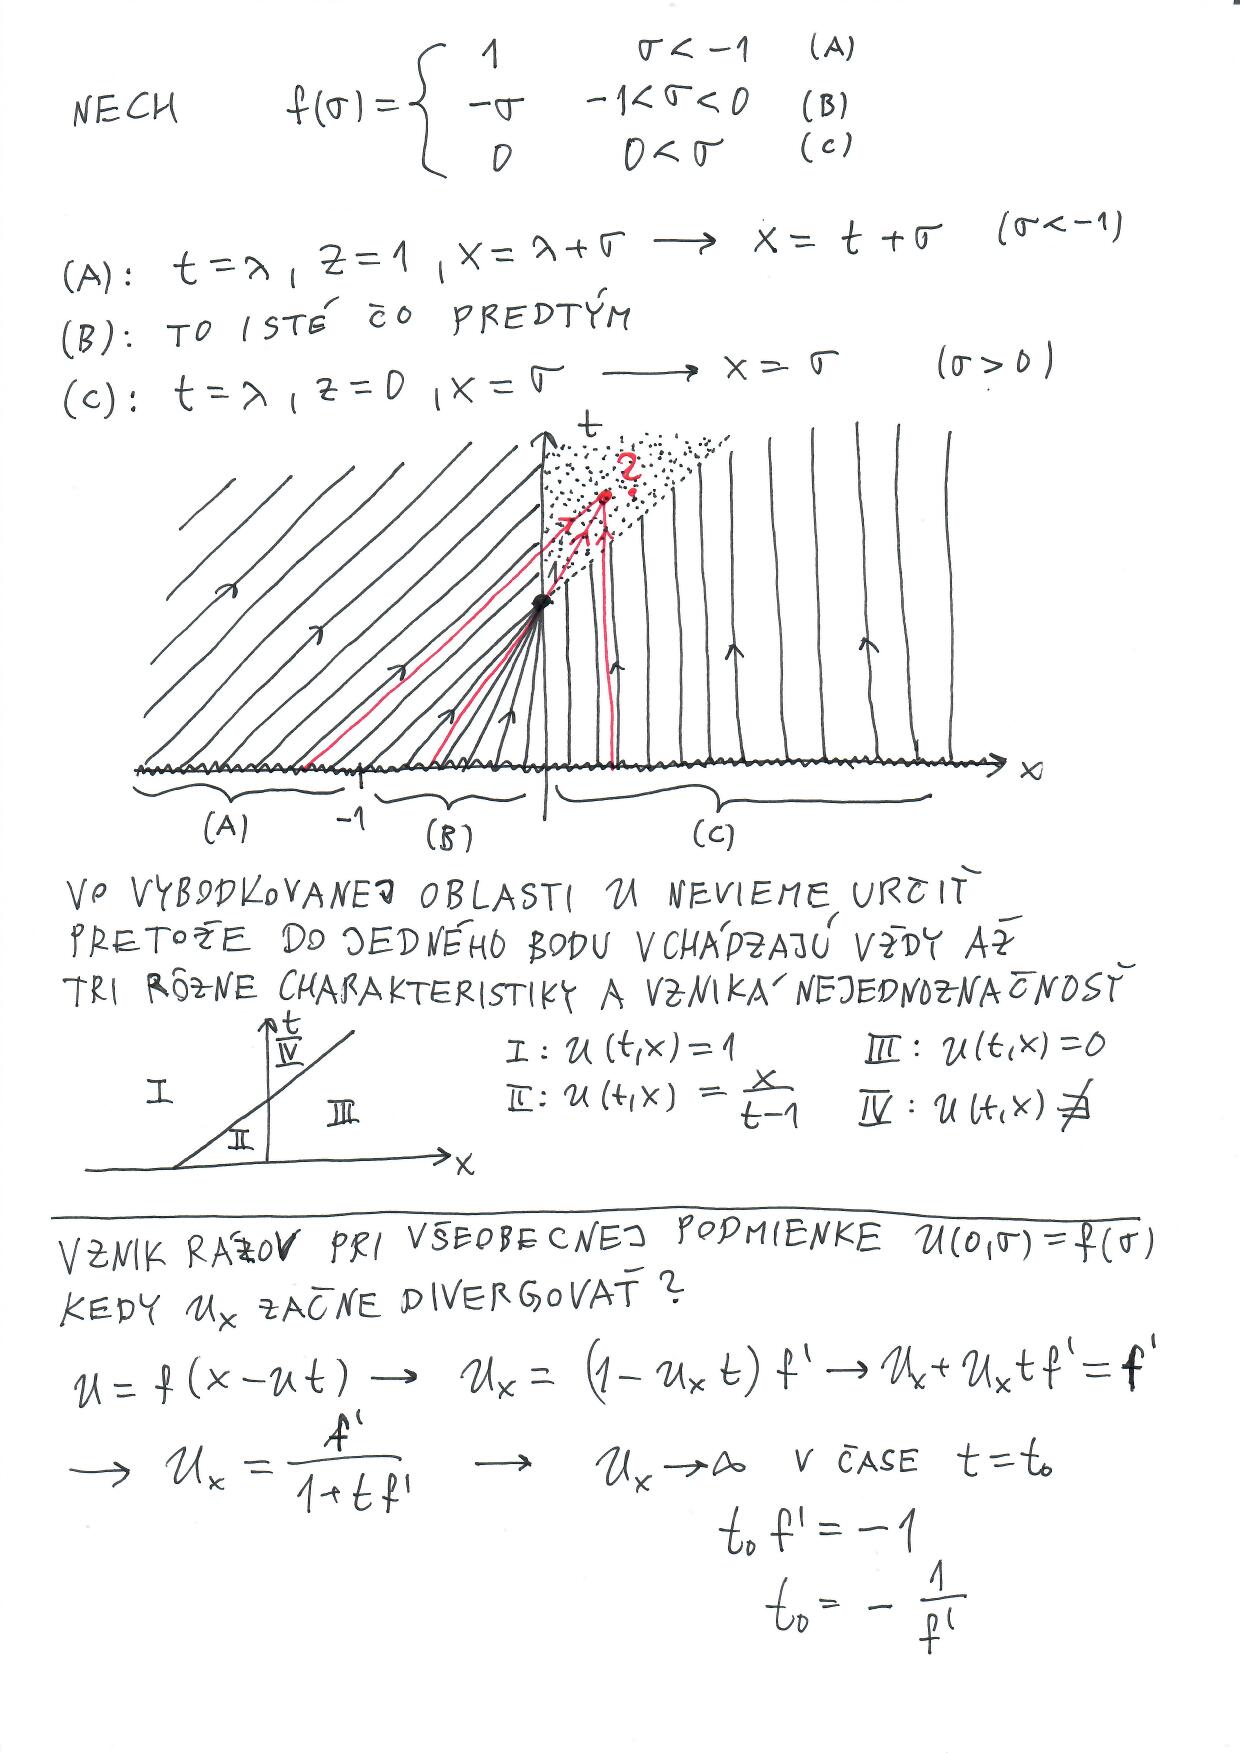 NECH f(σ) = { 1 σ < -1 (A)
-σ -1 < σ < 0 (B)
0 0 < σ (C)
(A): t = λ, z = 1, x = λ + σ → x = t + σ (σ < -1)
(B): TO ISTÉ ČO PREDTÝM
(C): t = λ, z = 0, x = σ → x = σ (σ > 0)
t
?
1
x
(A) -1 (B) (C)
VO VYBODKOVANEJ OBLASTI U NEVIEME URČIŤ
PRETOŽE DO JEDNÉHO BODU VCHÁDZAJÚ VŽDY AŽ
TRI RÔZNE CHARAKTERISTIKY A VZNIKÁ NEJEDNOZNAČNOSŤ
t
I II III IV
x
I: u(t,x) = 1 III: u(t,x) = 0
II: u(t,x) = x/(t-1) IV: u(t,x) ∄
VZNIK RÁZOV PRI VŠEOBECNEJ PODMIENKE U(0,σ) = f(σ)
KEDY u_x ZAČNE DIVERGOVAŤ?
u = f(x - ut) → u_x = (1 - u_x t) f' → u_x + u_x t f' = f'
→ u_x = f'/(1 + t f') → u_x → ∞ V ČASE t = t₀
t₀ f' = -1
t₀ = - 1/f'